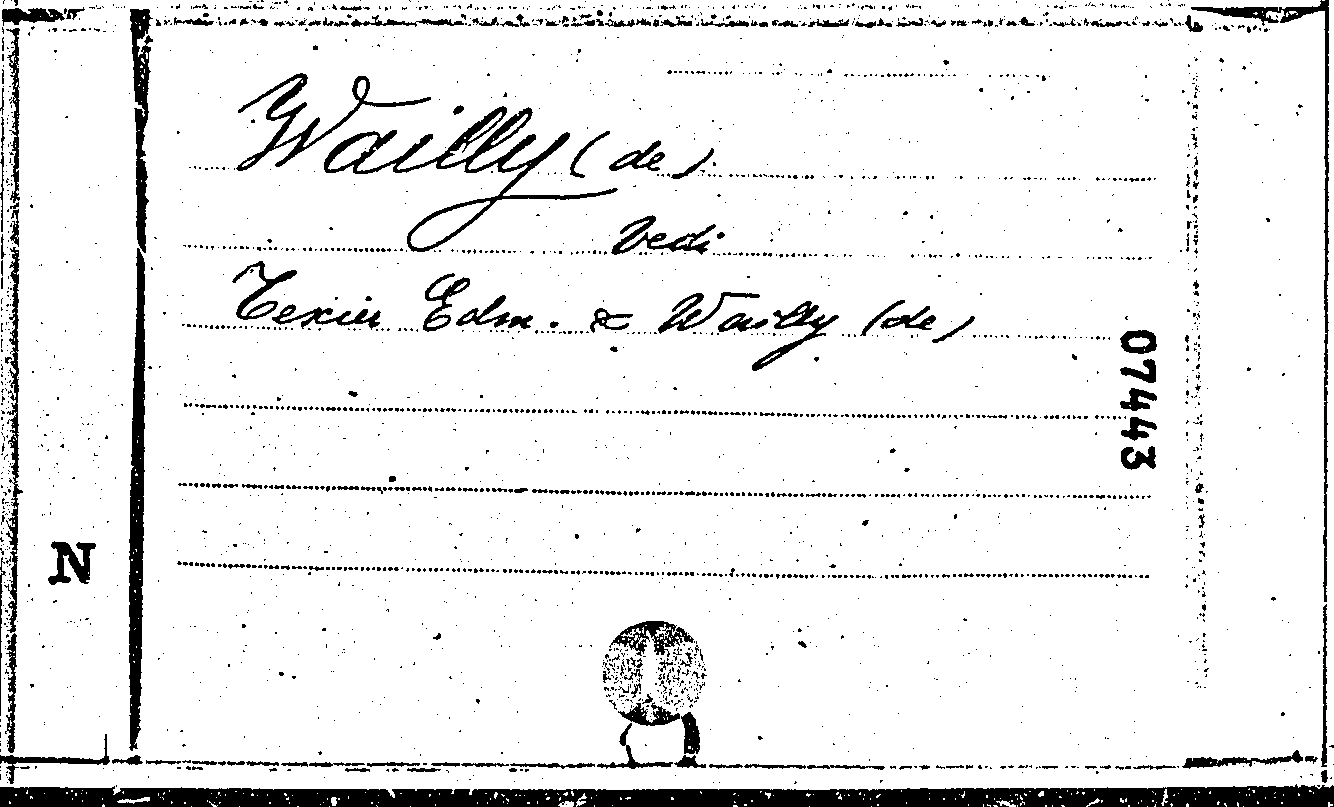 Wailly (de)
vedi
Texier Edm. & Wailly (de)
07443
N